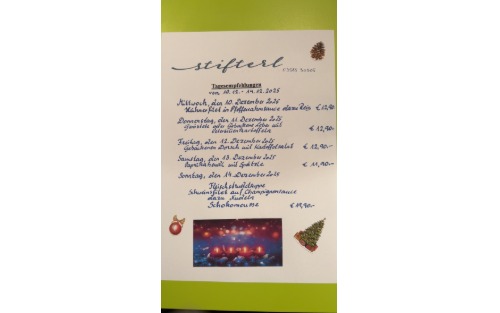 stifterl
Tagesempfehlungen
vom 10.12. - 14.12.2025
Mittwoch, den 10. Dezember 2025
Hühnerfilet in Pfefferrahmsauce dazu Reis € 12,90-
Donnerstag, den 11. Dezember 2025
Geröstete oder Gebackene Leber mit
Petersilienkartoffeln € 12,90-
Freitag, den 12. Dezember 2025
Gebackener Dorsch mit Kartoffelsalat € 12,90-
Samstag, den 13. Dezember 2025
mit Spätzle € 11,90-
Sonntag, den 14. Dezember 2025
Fleischstrudelsuppe
Schweinsfilet auf Champignonsauce
dazu Nudeln
Schokomousse € 19,90-